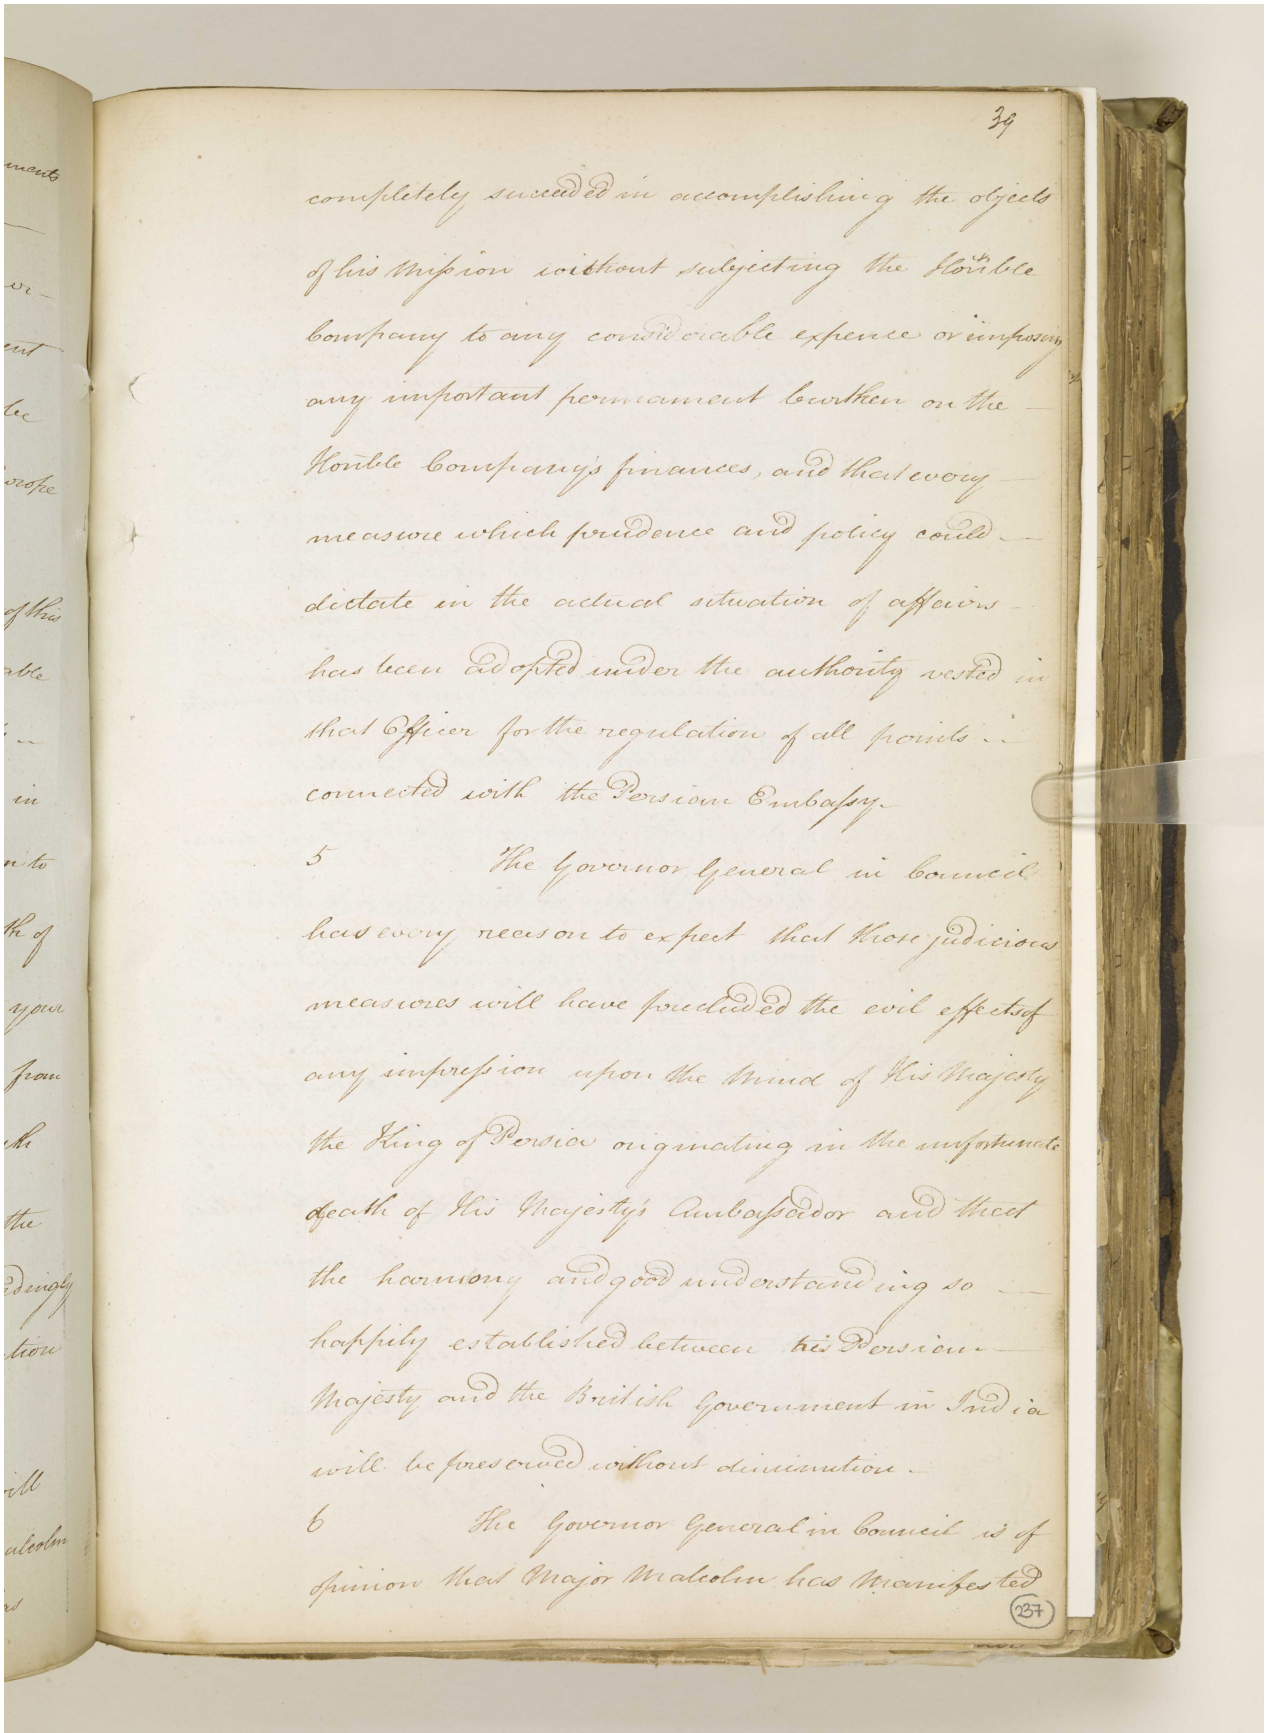 39
completely succeeded in accomplishing the objects
of his Mission without subjecting the Honble
Company to any considerable expence or imposing
any important permament burthen on the
Honble Company's finances, and that every
measure which prudence and policy could
dictate in the actual situation of affairs
has been adopted under the authority vested in
that Officer for the regulation of all points
connected with the Persian Embassy.
5 The Governor General in Council
has every reason to expect that those judicious
measures will have precluded the evil effects of
any impression upon the Mind of His Majesty
the King of Persia originating in the unfortunate
death of His Majesty's Ambassador and that
the harmony and good understanding so
happily established between his Persian
Majesty and the British Government in India
will be preserved without diminution.
6 The Governor General in Council is of
opinion that Major Malcolm has Manifested
237
ments
or
ent
be
urope
of this
able
in
n to
th of
your
from
th
the
dingly
tion
ill
alcolm
as